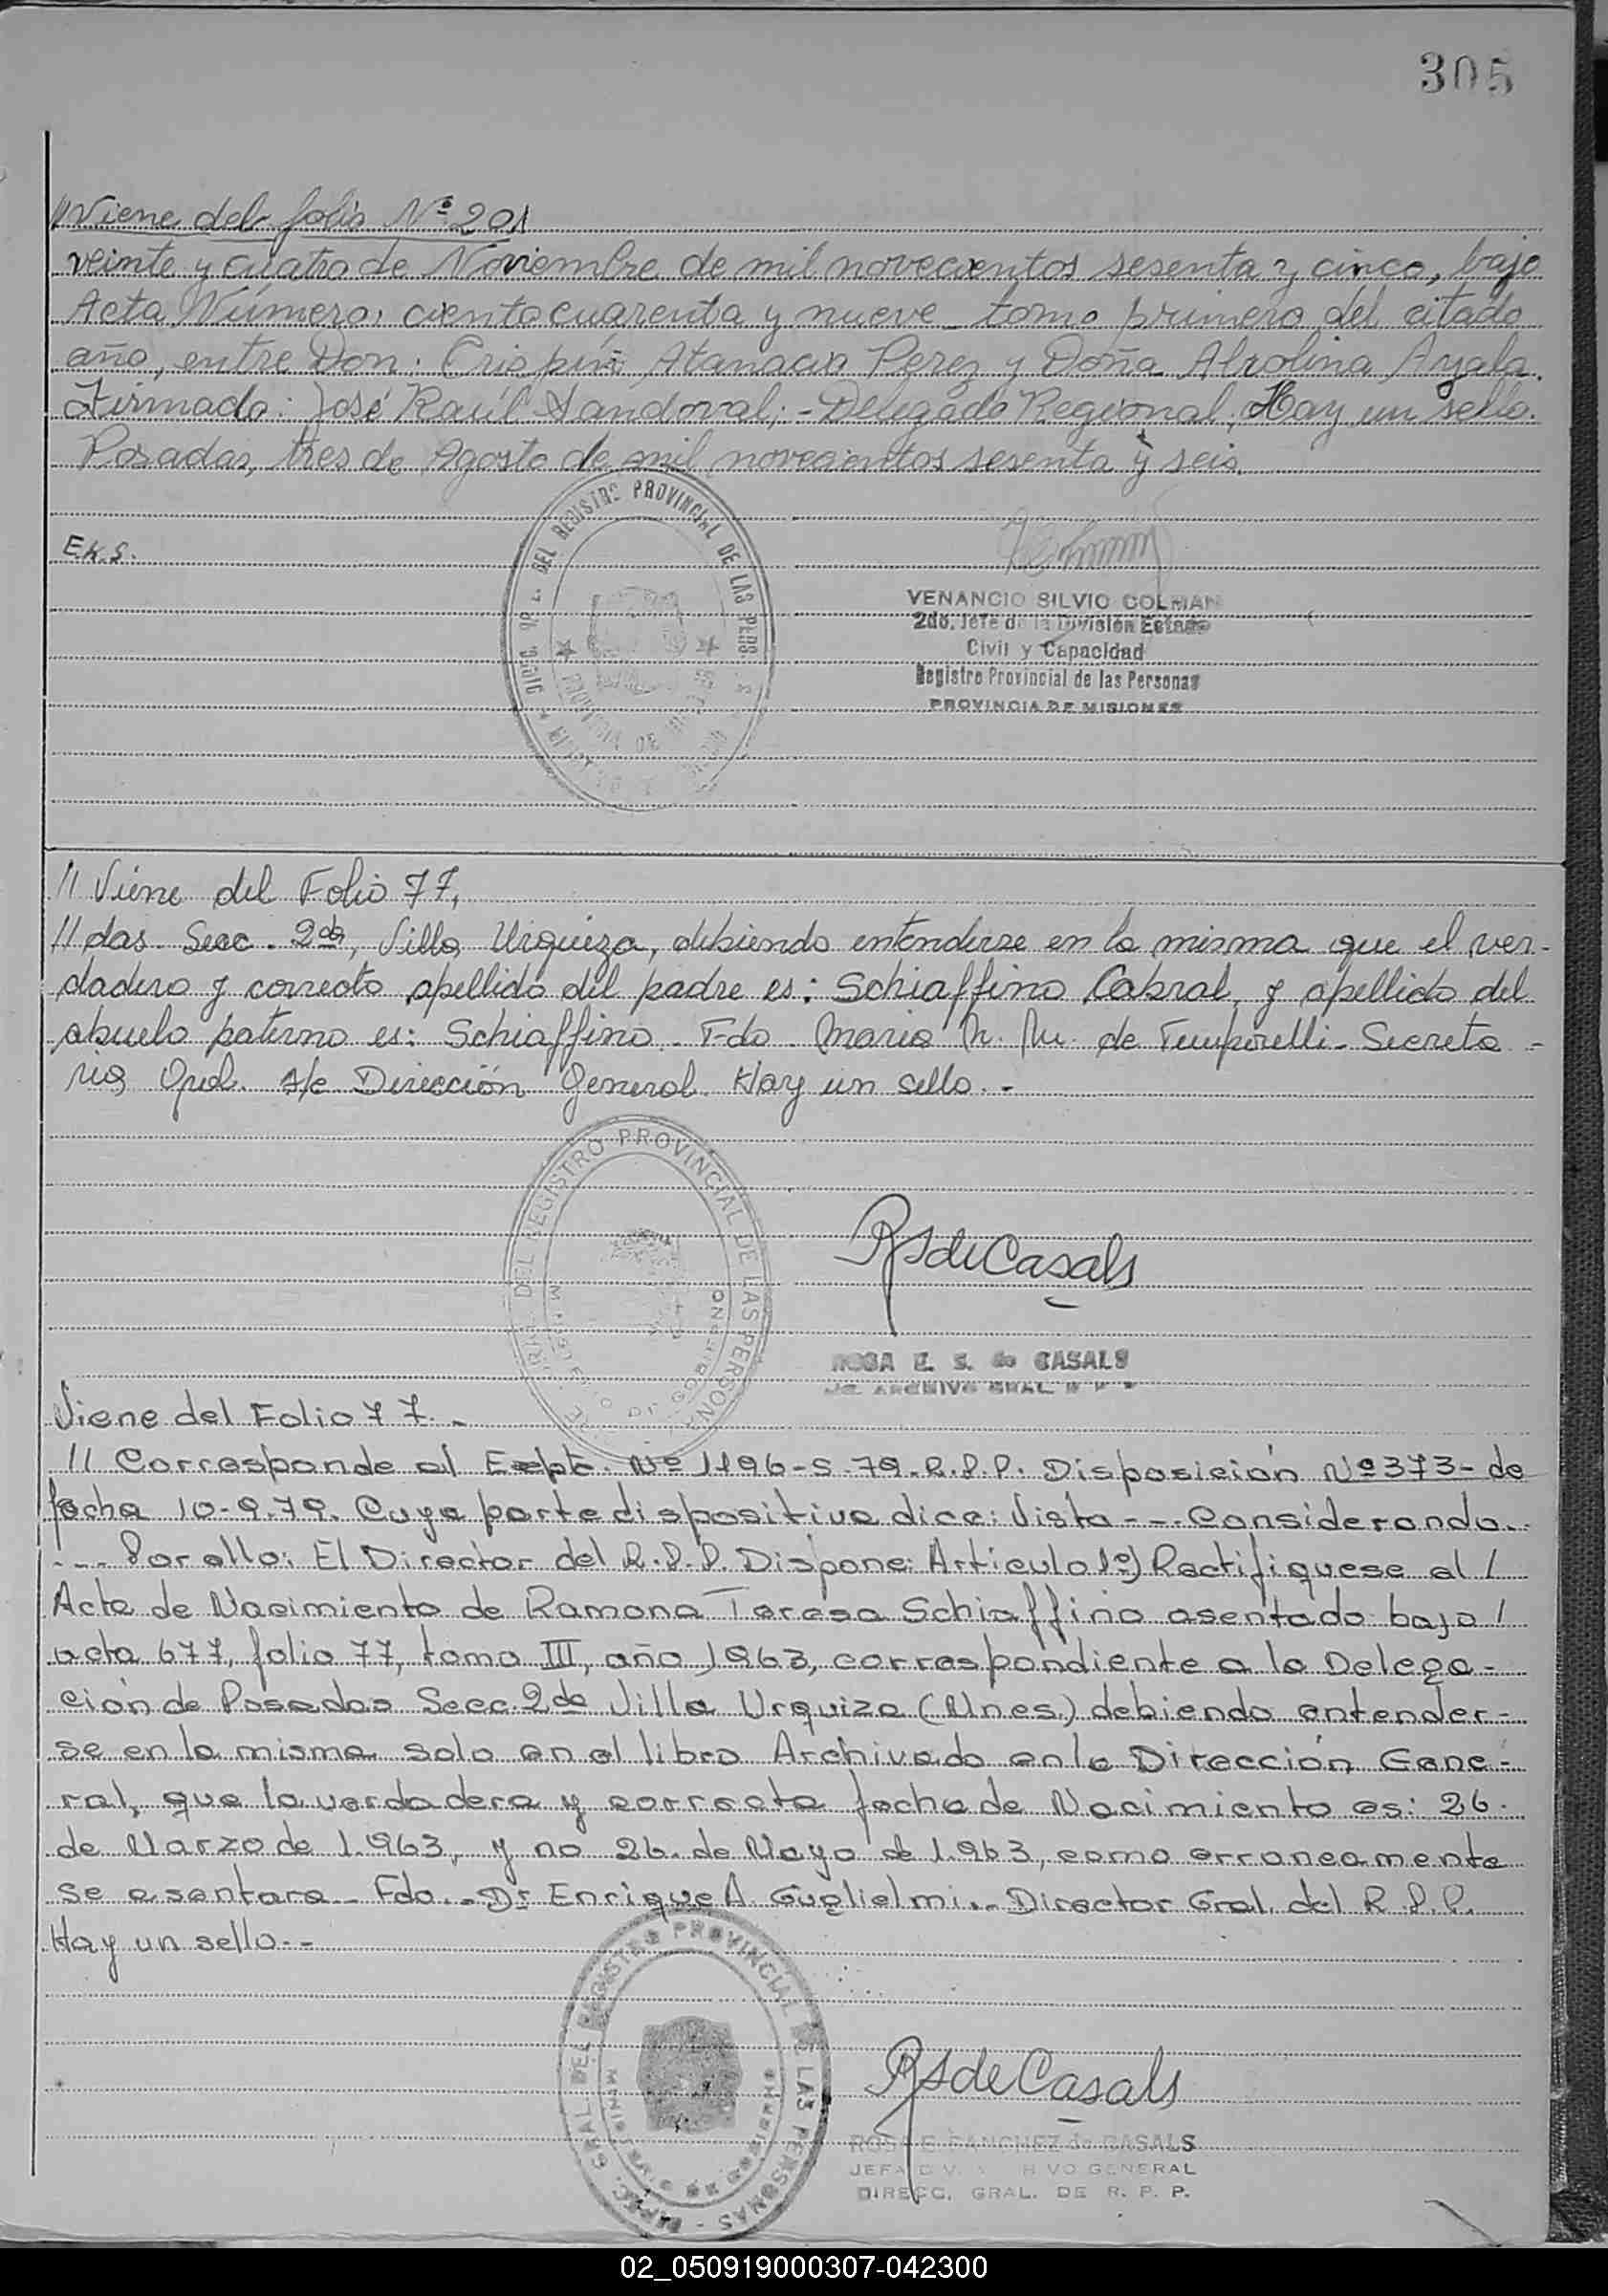 305
//Viene del folio Nº 201
veinte y cuatro de Noviembre de mil novecientos sesenta y cinco, bajo
Acta Número: ciento cuarenta y nueve tomo primero del citado
año, entre Don: Crispín Atanacio Perez y Doña Ayala.
Firmado: José Raúl Sandoval; - Delegado Regional; Hay un sello.
Posadas, tres de Agosto de mil novecientos sesenta y seis.
DEL REGISTRO PROVINCIAL DE LAS PERS.
E.K.S.
VENANCIO SILVIO COLMAN
2do. Jefe de la División Estado
Civil y Capacidad
Registro Provincial de las Personas
PROVINCIA DE MISIONES
// Viene del Folio 77,
//das Secc. 2da, Villa Urquiza, debiendo entenderse en la misma que el ver-
dadero y correcto apellido del padre es: Schiaffino Cabral, y apellido del
abuelo paterno es: Schiaffino. Fdo. Maria de Temporelli - Secreta -
ria Gral. A/c Dirección General. Hay un sello. -
DEL REGISTRO PROVINCIAL DE LAS PERSONAS
RSdeCasals
ROSA E. S. de CASALS
ARCHIVO GRAL. R P P
Viene del Folio 77. -
// Corresponde al Expte. Nº 1196-S-79.R.P.P. Disposición Nº 373- de
fecha 10-9-79. Cuya parte dispositiva dice: Vista --- Considerando..
--- Por ello: El Director del R.P.P. Dispone: Artículo 1º) Rectifiquese el /
Acta de Nacimiento de Ramona Teresa Schiaffino asentado bajo /
acta 677, folio 77, tomo III, año 1963, correspondiente a la Delega-
ción de Posadas Secc. 2da Villa Urquiza (Mnes.) debiendo entender-
se en la misma solo en el libro Archivado en la Dirección Gene-
ral, que la verdadera y correcta fecha de Nacimiento es: 26.
de Marzo de 1.963, y no 26. de Mayo de 1.963, como erroneamente
se asentara - Fdo. - Dr. Enrique A. Guglielmi. - Director Gral. del R.P.P.
Hay un sello. -
GRAL. DEL REGISTRO PROVINCIAL DE LAS PERSONAS
RSdeCasals
ROSA E. SANCHEZ de CASALS
JEFA DIV. ARCHIVO GENERAL
DIRECC. GRAL. DE R. P. P.
02_050919000307-042300